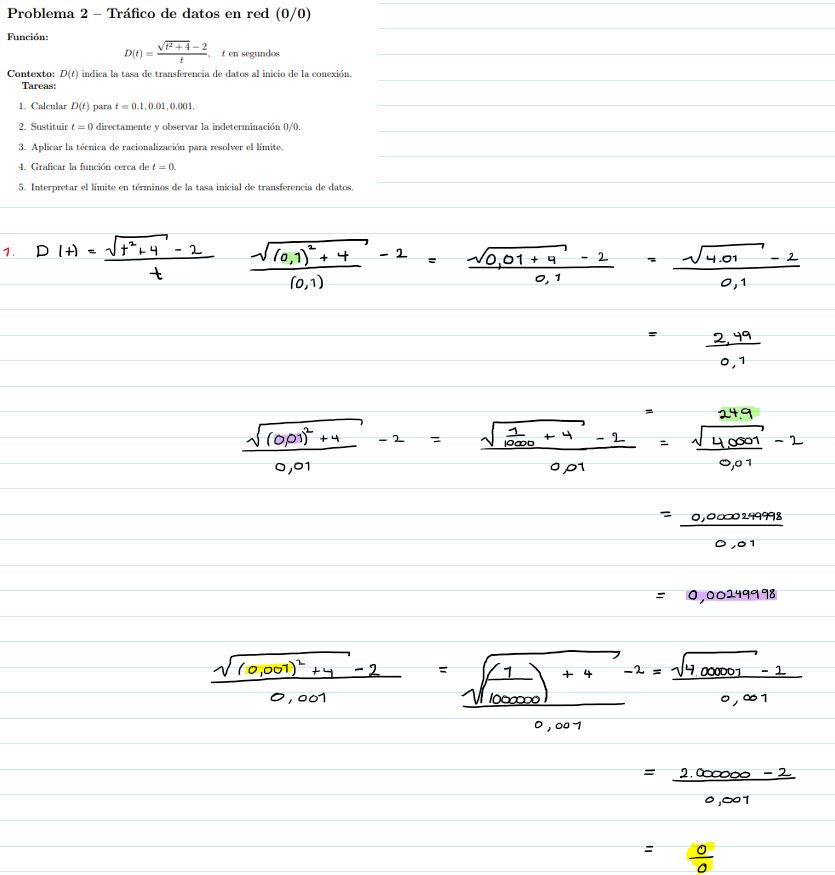 Problema 2 – Tráfico de datos en red (0/0)
Función:
D(t) = \frac{\sqrt{t^2 + 4} - 2}{t}, t en segundos
Contexto: D(t) indica la tasa de transferencia de datos al inicio de la conexión.
Tareas:
1. Calcular D(t) para t = 0.1, 0.01, 0.001.
2. Sustituir t = 0 directamente y observar la indeterminación 0/0.
3. Aplicar la técnica de racionalización para resolver el límite.
4. Graficar la función cerca de t = 0.
5. Interpretar el límite en términos de la tasa inicial de transferencia de datos.
1. D (t) = \frac{\sqrt{t^2 + 4} - 2}{t} \frac{\sqrt{(0,1)^2 + 4} - 2}{(0,1)} = \frac{\sqrt{0,01 + 4} - 2}{0,1} = \frac{\sqrt{4.01} - 2}{0,1}
= \frac{2,49}{0,1}
= 24.9
\frac{\sqrt{(0,01)^2 + 4} - 2}{0,01} = \frac{\sqrt{\frac{1}{10000} + 4} - 2}{0,01} = \frac{\sqrt{4.0001} - 2}{0,01}
= \frac{0,0000249998}{0,01}
= 0,00249998
\frac{\sqrt{(0,001)^2 + 4} - 2}{0,001} = \frac{\sqrt{(\frac{1}{1000000}) + 4} - 2}{0,001} = \frac{\sqrt{4.000001} - 2}{0,001}
= \frac{2.000000 - 2}{0,001}
= \frac{0}{0}